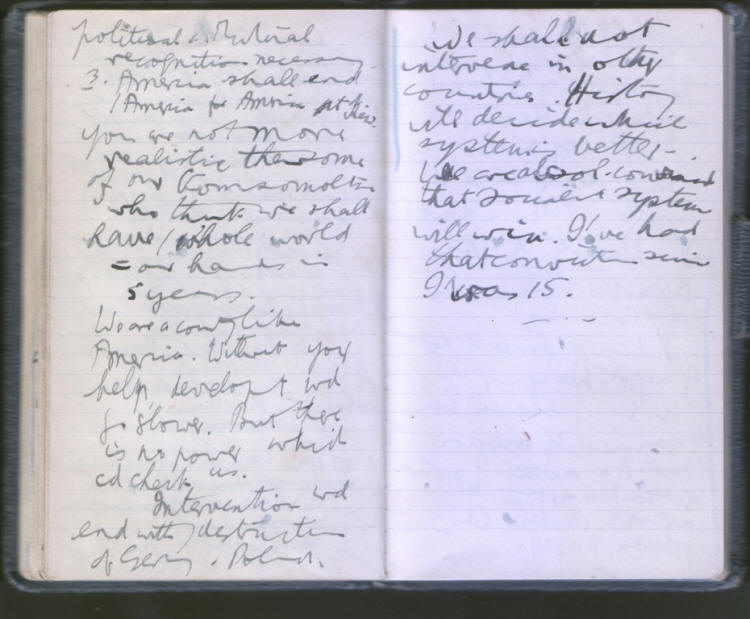 political & Mutual
recognition necessary.
3. America shall end
/ America for America
you are not more
realistic than some
of our Komsomoltsi
who think we shall
have / whole world
= our hands in
5 years.
We are a country like
America. Without your
help developt wd
go slower. But there
is no power which
cd check us.
Intervention wd
end with / destruction
of Germy. Poland.
We shall not
intervene in other
countries. History
will decide which
system is better.
We are convinced
that socialist system
will win. I've had
that conviction since
I was 15.